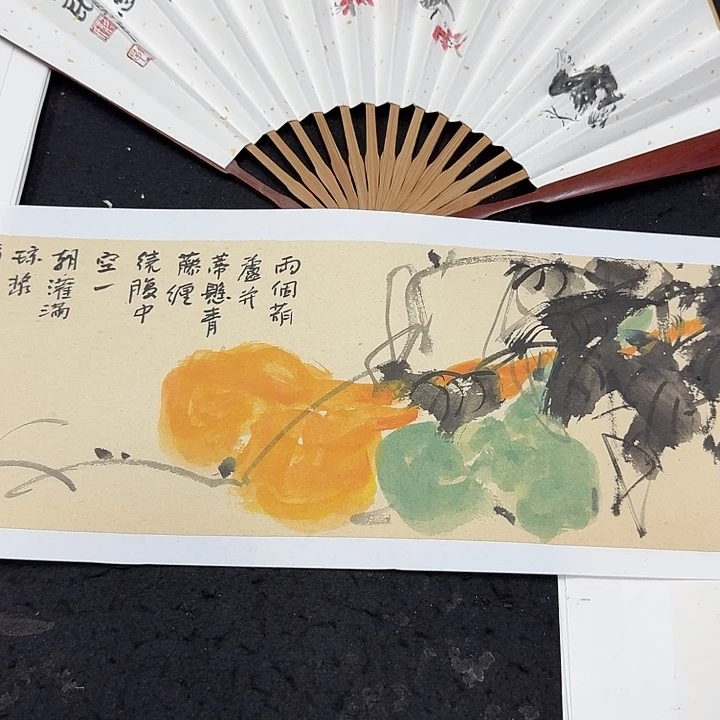 兩個葫
蘆并
蒂懸青
藤纏
繞腹中
空一
朝灌滿
瓊漿